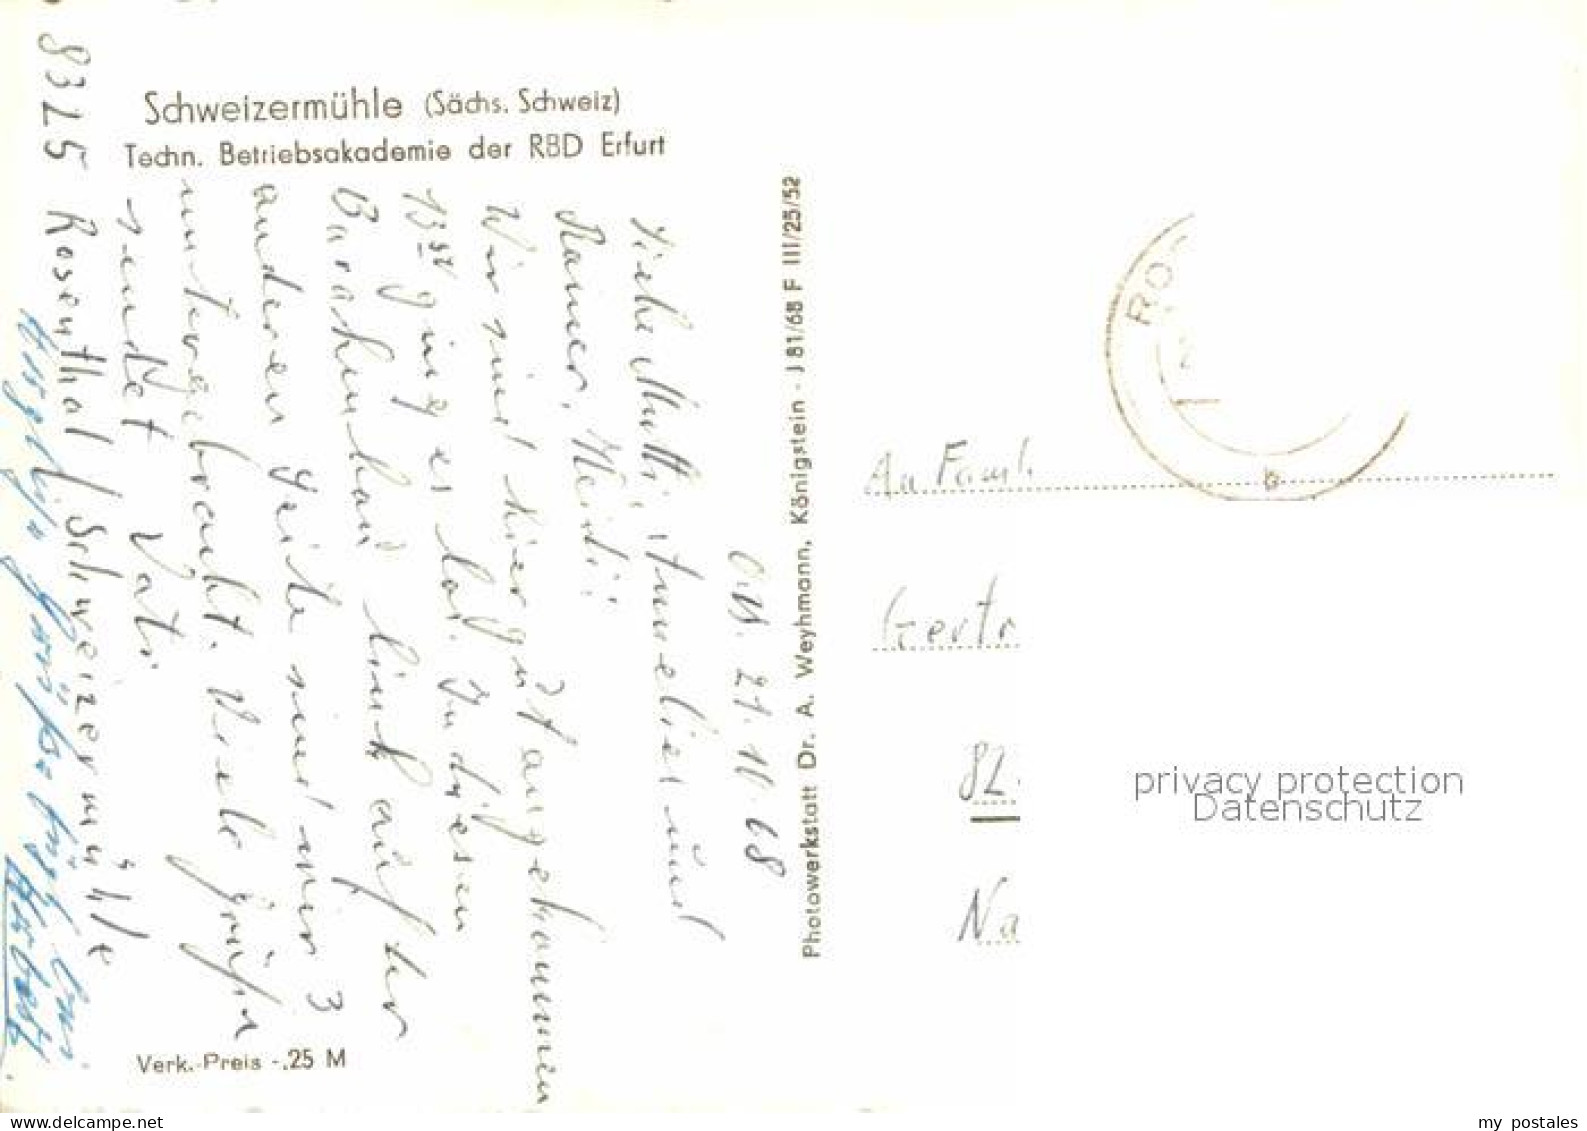 Schweizermühle (Sächs. Schweiz)
Techn. Betriebsakademie der RBD Erfurt
O.U. 21.11.68
Liebe Mutti, Anneliese und
Rainer, Heidi!
Wir sind hier gut angekommen
13 ging es los. In diesem
Barackenbau links auf der
anderen Seite sind wir 3
untergebracht. Viele Grüße
sendet Vati.
8325 Rosenthal / Schweizermühle
Grüße
Verk.-Preis -.25 M
Photowerkstatt Dr. A. Weyhmann, Königstein - J 81/68 F III/25/52
RO
b
An Faml.
Gertr
82
Na
privacy protection
Datenschutz
www.delcampe.net
my postales